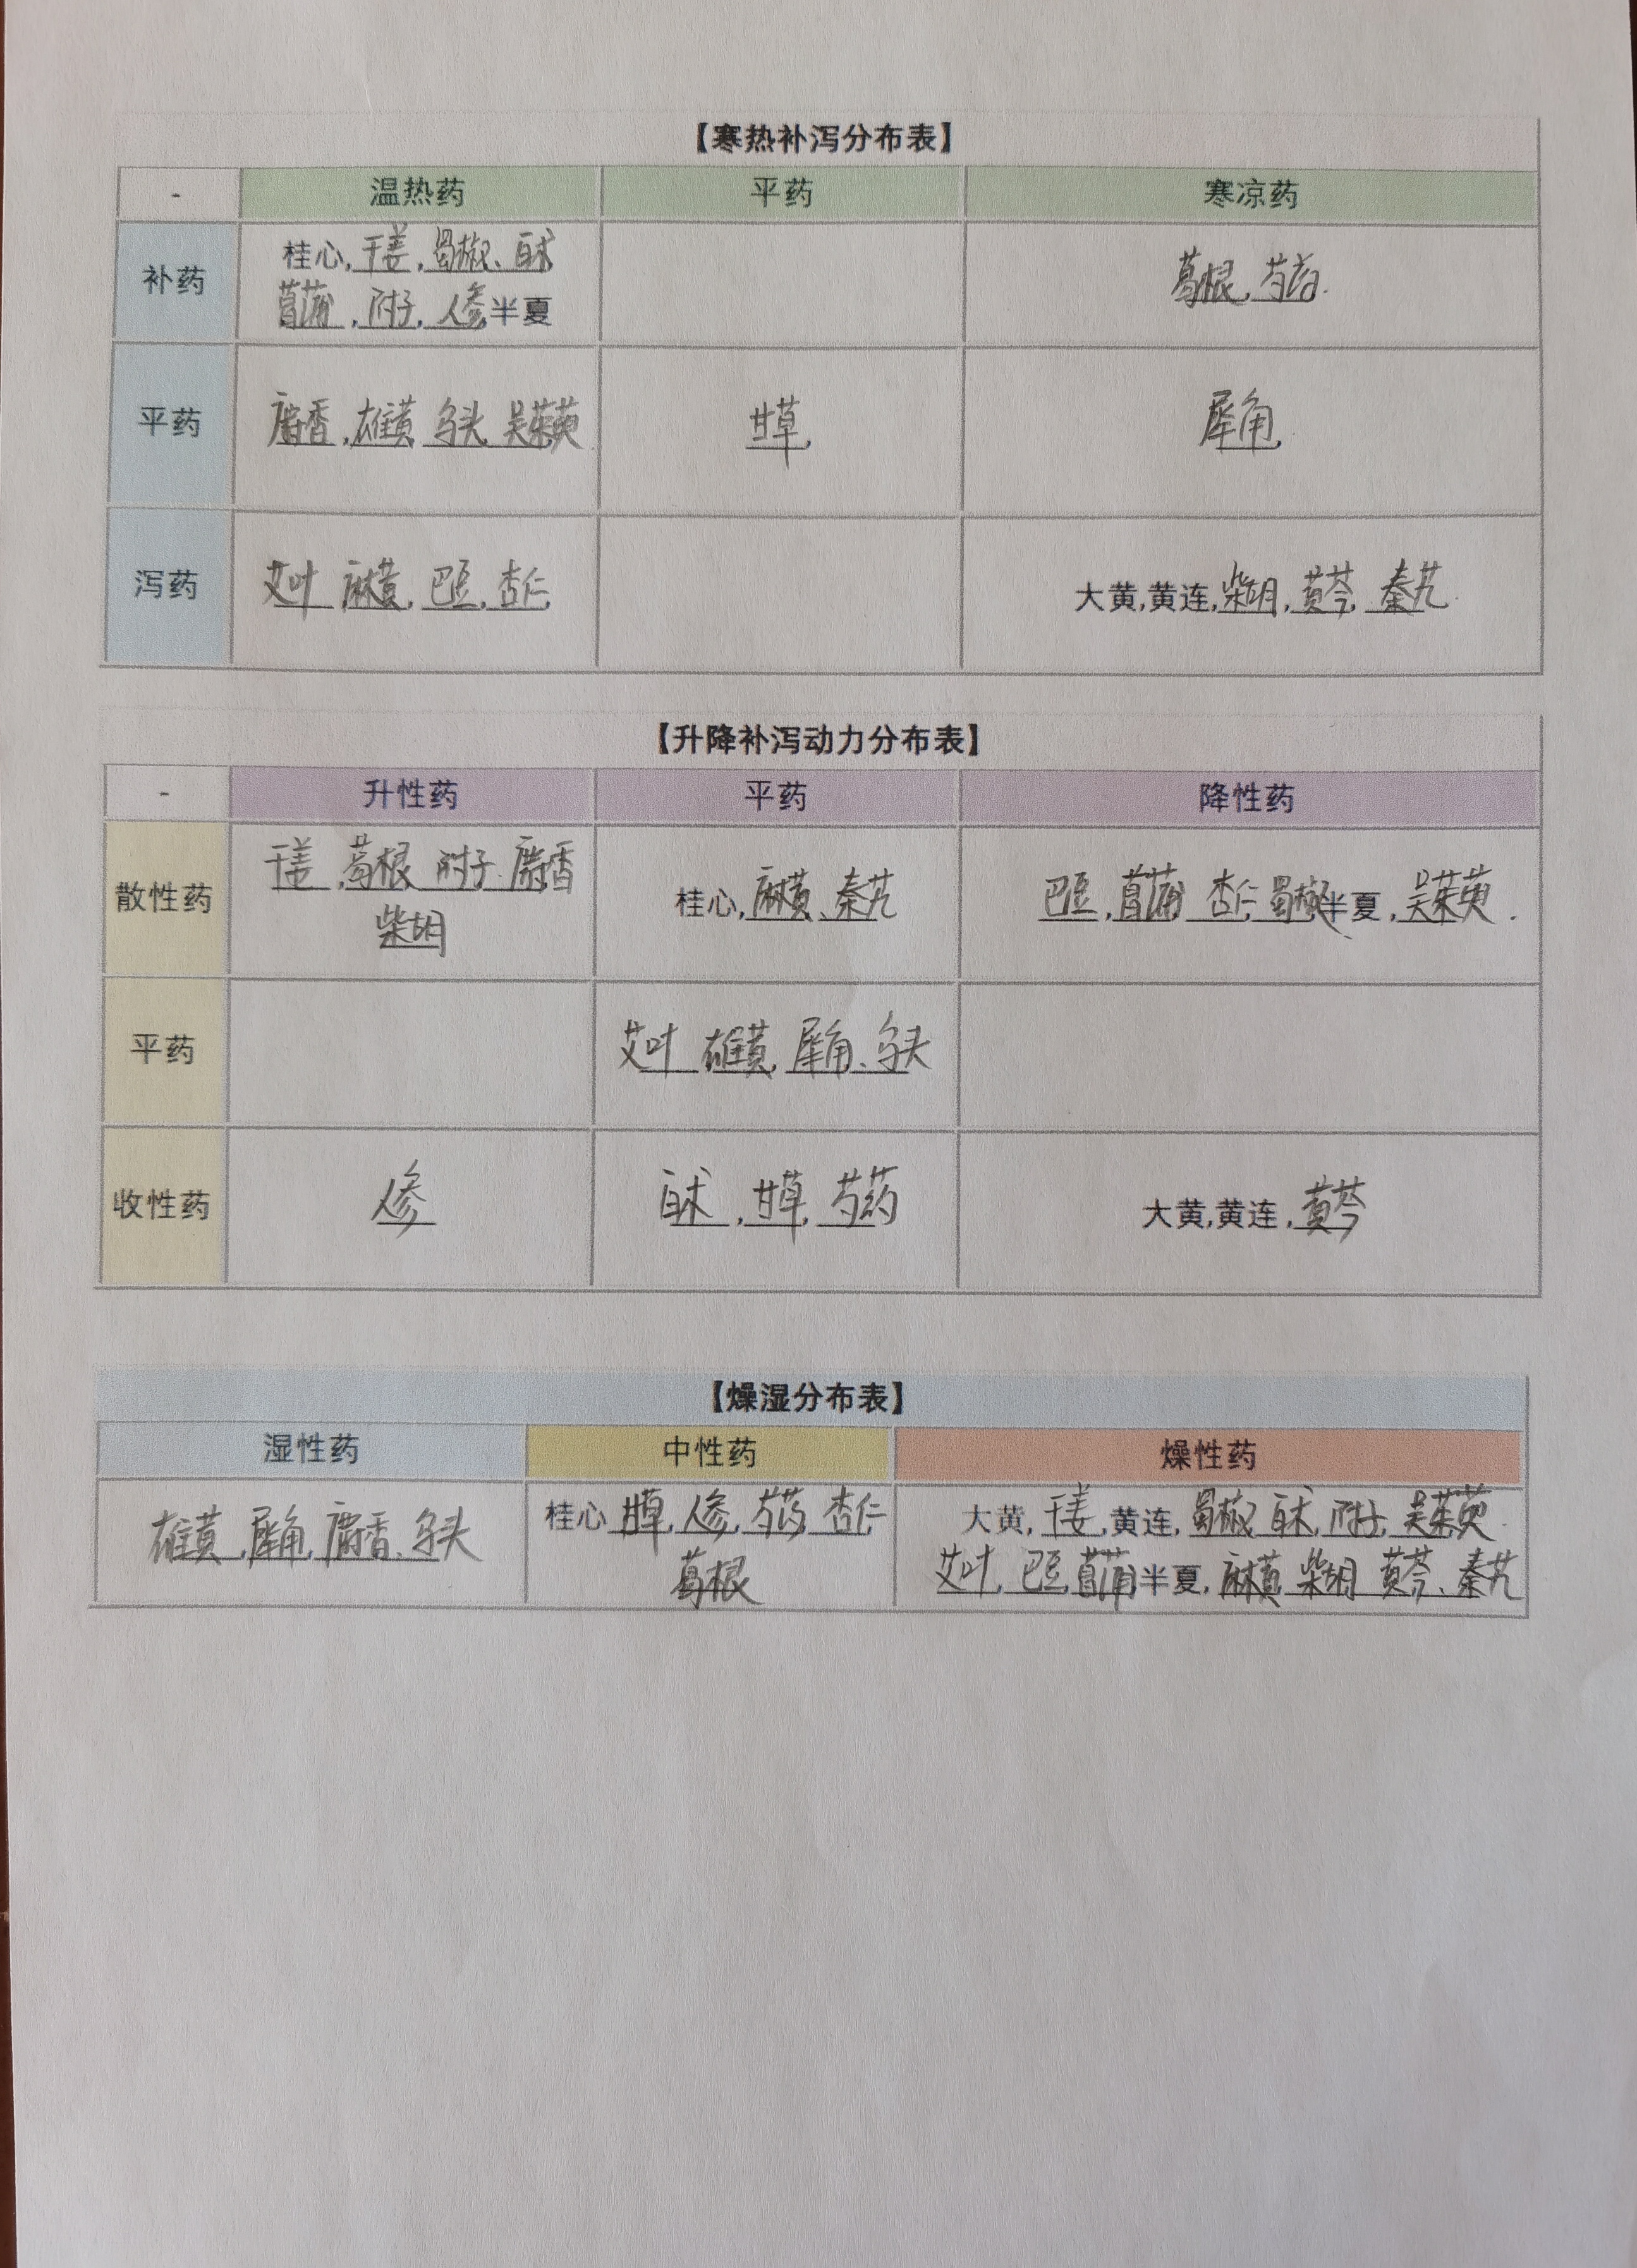 【寒热补泻分布表】
- 温热药 平药 寒凉药
补药
桂心,干姜,蜀椒、白术
菖蒲,附子,人参,半夏
葛根,芍药.
平药
麝香,雄黄,乌头,吴茱萸
甘草,
犀角,
泻药
艾叶 麻黄,巴豆,杏仁,
大黄,黄连,柴胡,黄芩,秦艽.
【升降补泻动力分布表】
- 升性药 平药 降性药
散性药
干姜,葛根 附子.麝香
柴胡
桂心,麻黄、秦艽
巴豆,菖蒲 杏仁 蜀椒、半夏,吴茱萸.
平药
艾叶 雄黄,犀角、乌头
收性药
人参
白术,甘草,芍药
大黄,黄连,黄芩
【燥湿分布表】
湿性药 中性药 燥性药
雄黄,犀角,麝香、乌头
桂心 甘草,人参,芍药,杏仁
葛根
大黄,干姜,黄连,蜀椒 白术,附子,吴茱萸.
艾叶,巴豆,菖蒲,半夏,麻黄 柴胡 黄芩、秦艽